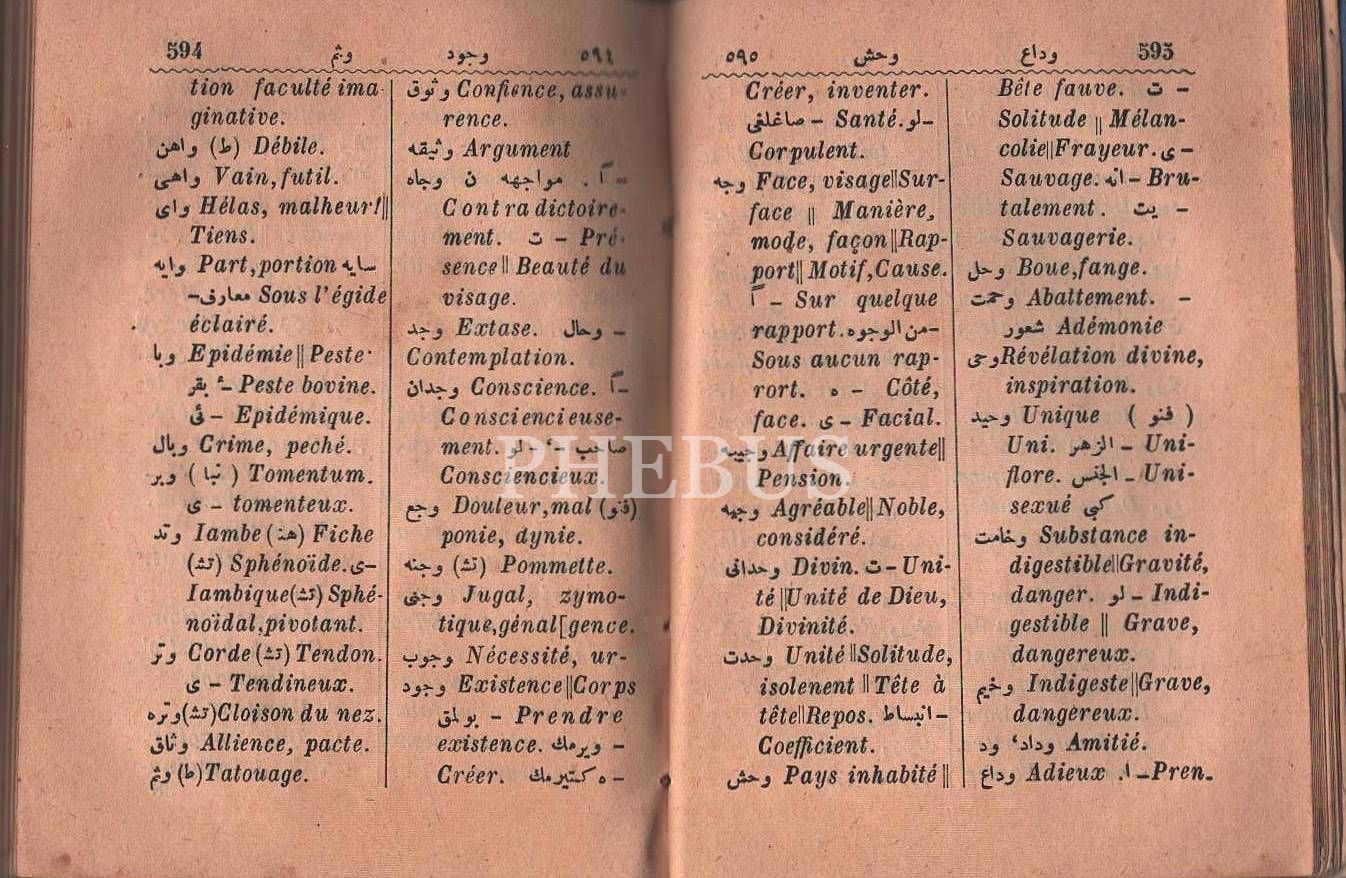 594 وثم وجود ٥٩٤
tion faculté ima-
ginative.
واهن (ط) Débile.
واهی Vain, futil.
وای Hélas, malheur!||
Tiens.
وایه Part, portion سایه
معارف- Sous l'égide
éclairé.
وبا Epidémie || Peste-
بقر - Peste bovine.
ئی - Epidémique.
وبال Crime, peché.
وبر (نبا) Tomentum.
ی - tomenteux.
وتد Iambe (هند) Fiche
(تشـ) Sphénoïde. ی-
Iambique (تشـ) Sphé-
noïdal, pivotant.
وتر Corde (تشـ) Tendon.
ی - Tendineux.
وتره (تشـ) Cloison du nez.
وثاق Allience, pacte.
وثم (ط) Tatouage.
وثوق Confience, assu-
rence.
وثیقه Argument
وجاه ن مواجهه . اً -
Contradictoire-
ment. ت - Pré-
sence || Beauté du
visage.
وجد Extase. وحال -
Contemplation.
وجدان Conscience. اً -
Consciencieuse-
ment. صاحب -، لو-
Consciencieux.
وجع Douleur, mal (فنو)
ponie, dynie.
وجنه (تشـ) Pommette.
وجنی Jugal, zymo-
tique, génal [gence.
وجوب Nécessité, ur-
وجود Existence || Corps
بولمق - Prendre
existence. ویرمك -
Créer. ه کتیرمك -
٥٩٥ وحش وداع 595
Créer, inventer.
صاغلغی - Santé. لو-
Corpulent.
وجه Face, visage || Sur-
face || Manière,
mode, façon || Rap-
port || Motif, Cause.
اً - Sur quelque
rapport. من الوجوه-
Sous aucun rap-
rort. ه - Côté,
face. ی - Facial.
وجیبه Affaire urgente ||
Pension.
وجیه Agréable || Noble,
considéré.
وحدانی Divin. ت - Uni-
té || Unité de Dieu,
Divinité.
وحدت Unité || Solitude,
isolenent || Tête à
tête || Repos. انبساط-
Coefficient.
وحش Pays inhabité ||
Bête fauve. ت -
Solitude || Mélan-
colie || Frayeur. ی -
Sauvage. انه - Bru-
talement. یت -
Sauvagerie.
وحل Boue, fange.
وحمت Abattement. -
شعور Adémonie
وحی Révélation divine,
inspiration.
وحید Unique (فنو)
Uni. الزهر - Uni-
flore. الجنس - Uni-
sexué کبی
وخامت Substance in-
digestible || Gravité,
danger. لو - Indi-
gestible || Grave,
dangereux.
وخیم Indigeste || Grave,
dangereux.
وداد، ود Amitié.
وداع Adieux .ا - Pren-
PHEBUS